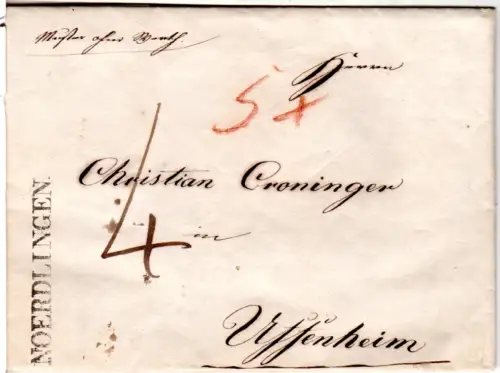 Muster ohne Werth.
Herrn
5 x
Christian Croninger
4
in
Uffenheim
NOERDLINGEN.